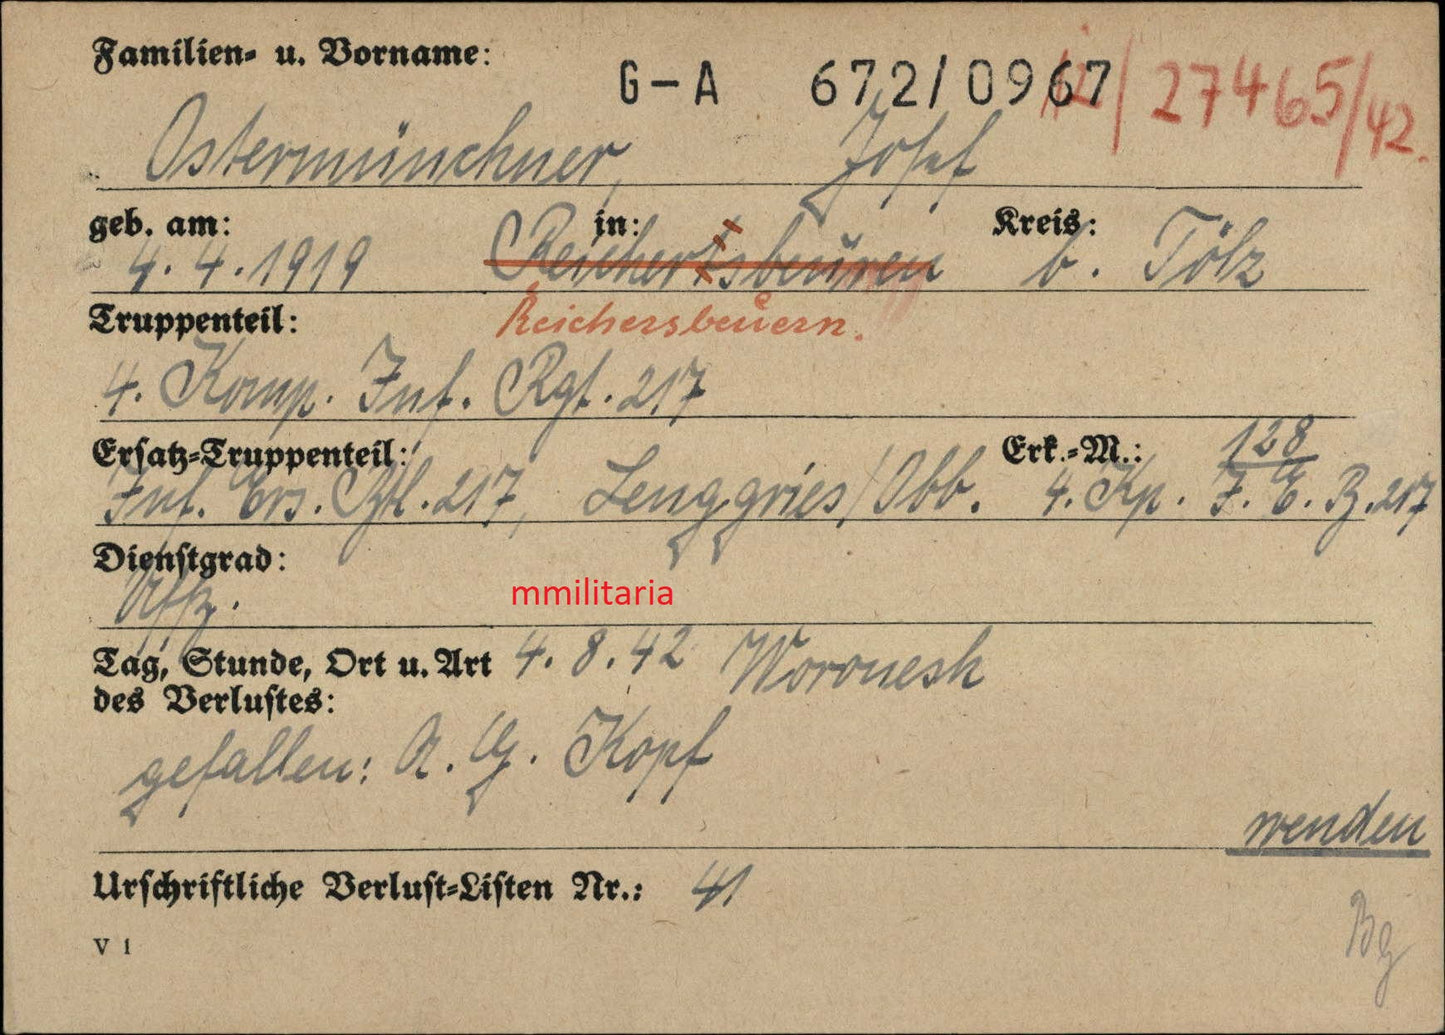 Familien- u. Vorname:
G-A 672/0967
12/27465/42.
Ostermünchner, Josef
geb. am: in: Kreis:
4. 4. 1919 Reichertsbeuren b. Tölz
Truppenteil: Reichersbeuern.
4. Komp. Inf. Rgt. 217
Ersatz-Truppenteil: Erk.-M.: 128
Inf. Ers. Btl. 217, Lenggries/Obb. 4. Kp. I. E. B. 217
Dienstgrad:
Uffz.
mmilitaria
Tag, Stunde, Ort u. Art 4. 8. 42 Woronesh
des Verlustes:
gefallen: A. G. Kopf
wenden
Urschriftliche Verlust-Listen Nr.: 41
V 1